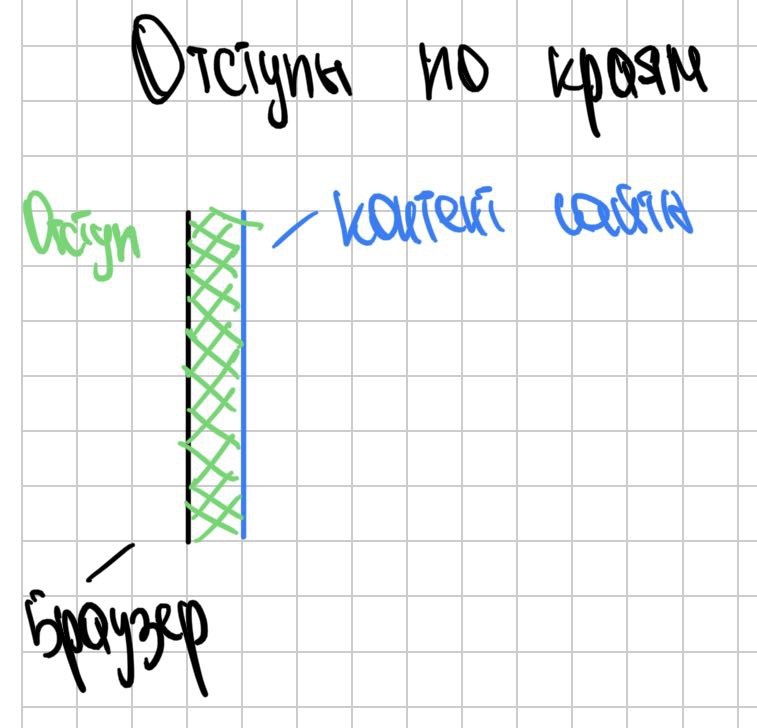 Отступы по краям
Отступ
Контент сайта
Браузер